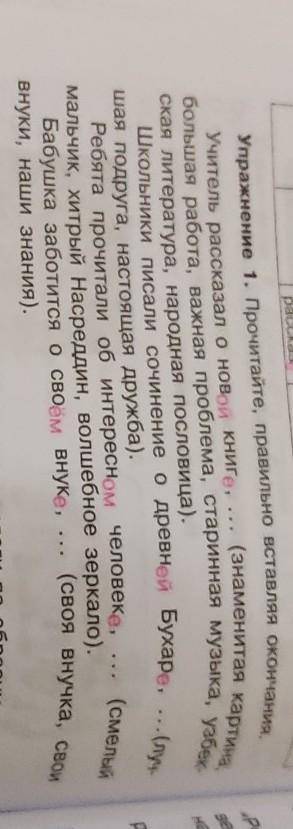 Упражнение 1. Прочитайте, правильно вставляя окончания.
Учитель рассказал о новой книге, ... (знаменитая картина,
большая работа, важная проблема, старинная музыка, узбек-
ская литература, народная пословица).
Школьники писали сочинение о древней Бухаре, ... (луч-
шая подруга, настоящая дружба).
Ребята прочитали об интересном человеке, ... (смелый
мальчик, хитрый Насреддин, волшебное зеркало).
Бабушка заботится о своём внуке, ... (своя внучка, свои
внуки, наши знания).